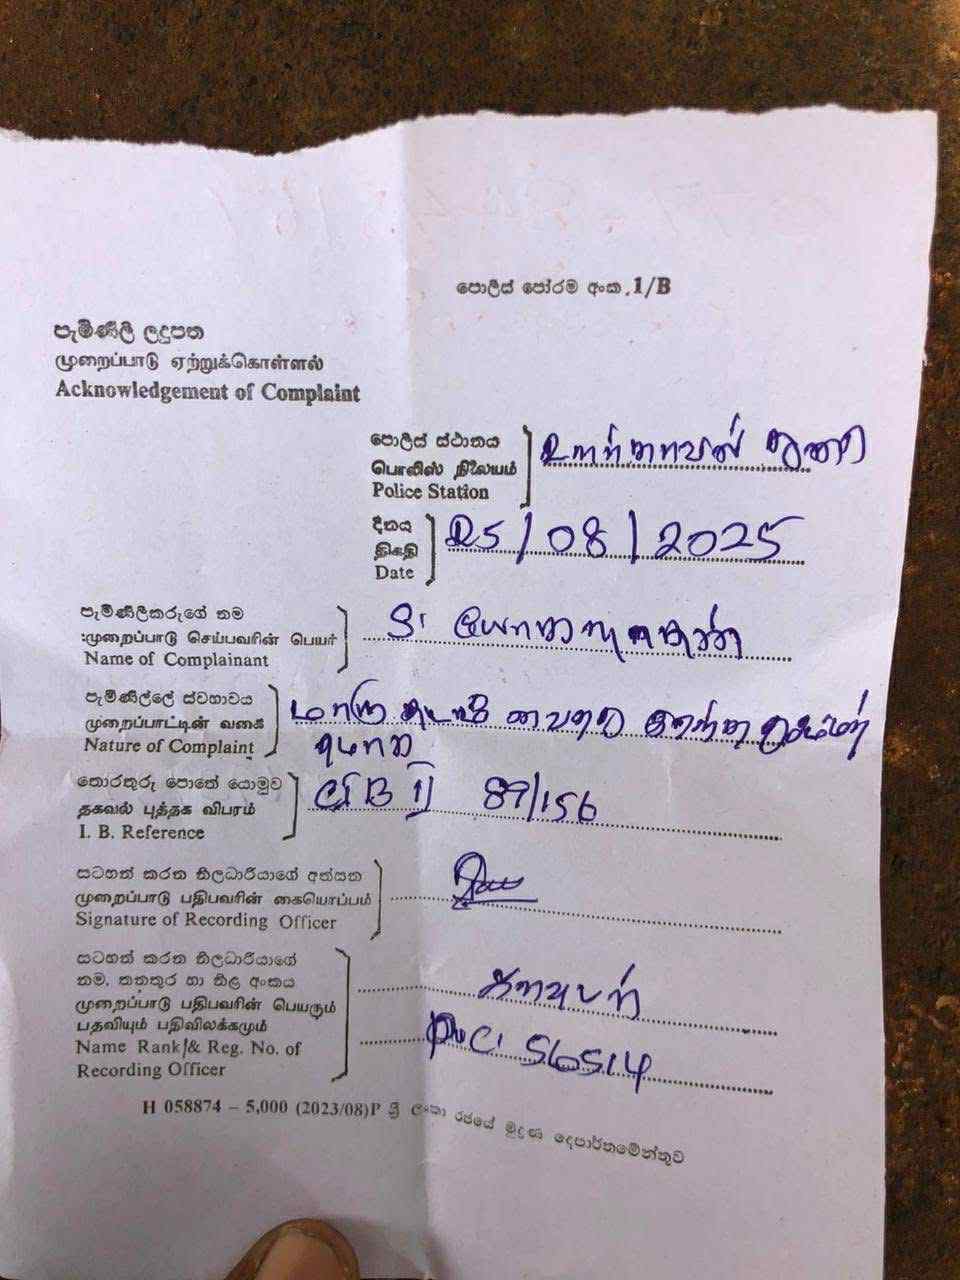 පොලිස් පෝරම අංක.1/B
පැමිණිලි ලදුපත
முறைப்பாடு ஏற்றுக்கொள்ளல்
Acknowledgement of Complaint
පොලිස් ස්ථානය
பொலிஸ் நிலையம்
Police Station
දිනය
திகதி
Date
25/08/2025
පැමිණිලිකරුගේ නම
முறைப்பாடு செய்பவரின் பெயர்
Name of Complainant
පැමිණිල්ලේ ස්වභාවය
முறைப்பாட்டின் வகை
Nature of Complaint
තොරතුරු පොතේ යොමුව
தகவல் புத்தக விபரம்
I. B. Reference
CIB II 89/156
සටහන් කරන නිලධාරියාගේ අත්සන
முறைப்பாடு பதிபவரின் கையொப்பம்
Signature of Recording Officer
සටහන් කරන නිලධාරියාගේ
නම, තනතුර හා නිළ අංකය
முறைப்பாடு பதிபவரின் பெயரும்
பதவியும் பதிவிலக்கமும்
Name Rank & Reg. No. of
Recording Officer
56514
H 058874 – 5,000 (2023/08)P ශ්‍රී ලංකා රජයේ මුද්‍රණ දෙපාර්තමේන්තුව